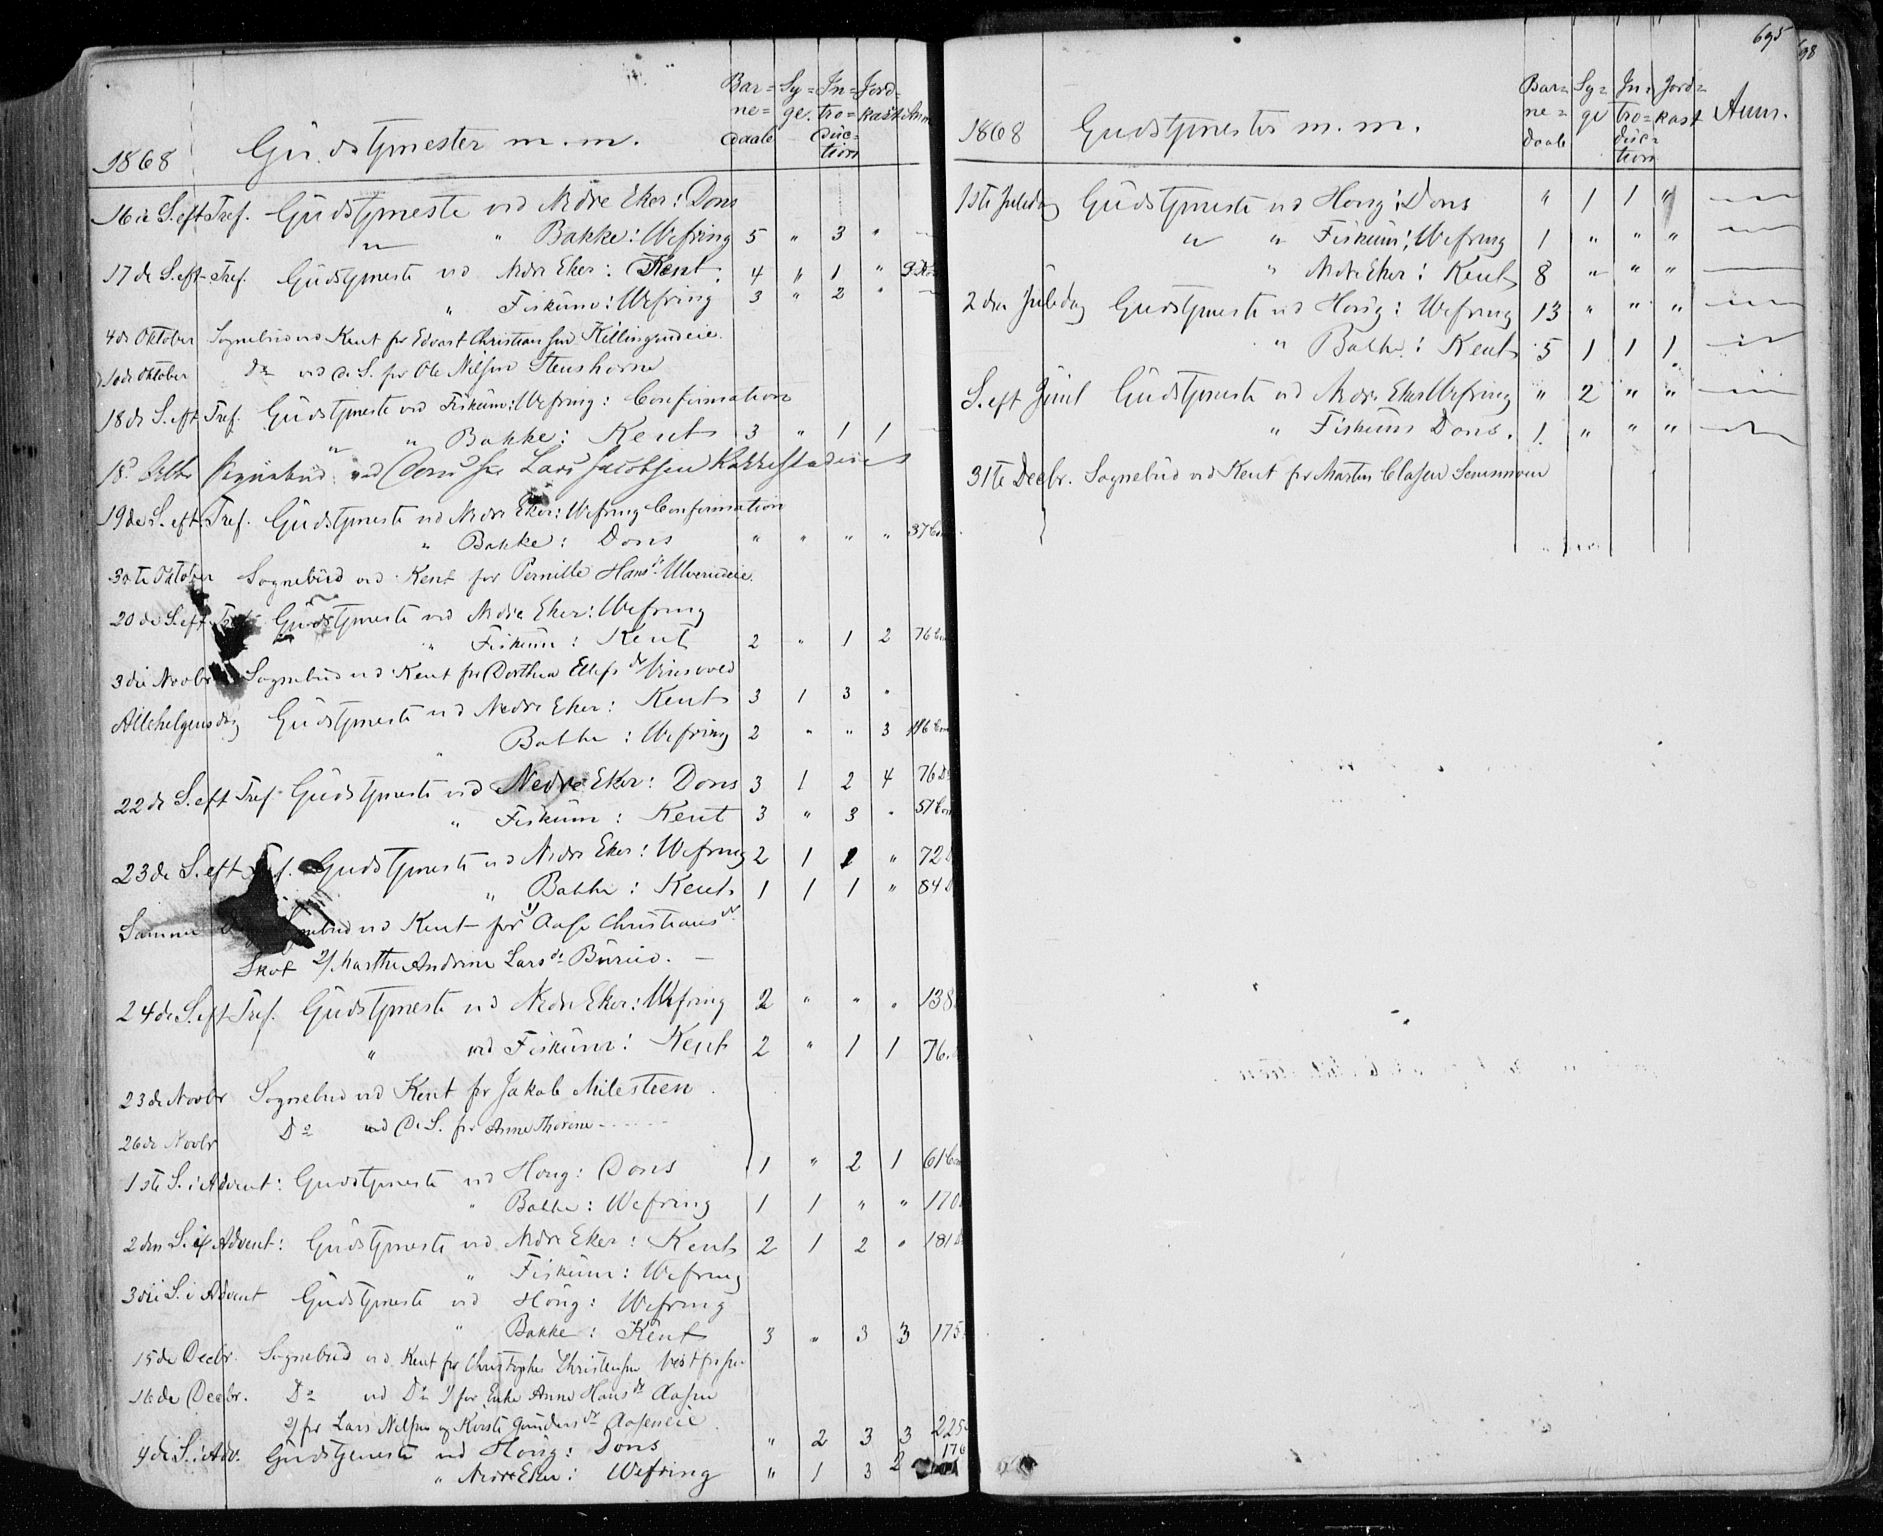 1868 Gudstjenester m. m. Bar= ne= daab Sy= ge. In= tro= duc= tion Jord= kast Anm
16de S. eft Tref. Gudstjeneste ved Nedre Eker: Dons
" " Bakke: Wefring 5 " 3 "
17de S. eft Tref. Gudstjeneste ved Nedre Eker: Kent. 4 " 1 "
" Fiskum: Wefring 3 " 2 "
4de Oktober Sognebud ved Kent for Edvart Christiansen Killingrudeie.
10de Oktober Do ved d. S. for Ole Nilsen Stenshorne
18de S. eft Tref. Gudstjeneste ved Fiskum: Wefring: Confirmation
" " Bakke: Kent 3 " 1 1
18d Octbr Sognebud ved Dons for Lars Jacobsen
19de S. eft. Tref. Gudstjeneste ved Nedre Eker: Wefring Confirmation
" Bakke: Dons " " " " 37 Com
30te Oktober Sognebud ved Kent for Pernille Hansdr Ulverudeie.
20de S. eft Tref. Gudstjeneste ved Nedre Eker: Wefring
" Fiskum: Kent 2 " 1 2 76 Com
3die Novbr Sognebud ved Kent for Dorthea Ellefsdr
Allehelgensdag Gudstjeneste ved Nedre Eker: Kent 3 1 3 "
" Bakke: Wefring 2 " " 3 116 Com
22de S. eft Tref. Gudstjeneste ved Nedre Eker: Dons 3 1 2 4 76 D
" Fiskum: Kent 3 " 3 " 51 Com
23de S. eft Tref. Gudstjeneste ved Nedre Eker: Wefring 2 1 1 " 72
" Bakke: Kent 1 1 1 " 84
Samme Sognebud ved Kent for 1/ Aase Christiansdr
2/ Marthe Andrine Larsdr Burud.
24de S. eft Tref. Gudstjeneste ved Nedre Eker: Wefring 2 " " " 138
" ved Fiskum: Kent 2 " 1 1 76
23de Novbr Sognebud ved Kent for Jakob Milesteen.
26de Novbr Do ved d. S. for Anne Thorine
1ste S. i Advent: Gudstjeneste ved Houg: Dons 1 " 2 1 61 Com
" Bakke: Wefring 1 1 " " 170
2den S. i Advent: Gudstjeneste ved Nedre Eker: Kent 2 1 2 " 181
" Fiskum: Wefring
3die S. i Advent Gudstjeneste ved Houg: Wefring
" Bakke: Kent 3 " 3 3 175
15de Decbr. Sognebud ved Kent for Christopher Christensen Vestfossen
16de Decbr. Do ved Do 1/ for Enke Anne Hansdr Aasen
2/ for Lars Nilsen og Kirsti Gundersdr Aaseneie.
4de S. i Adv. Gudstjeneste ved Houg: Dons " 2 3 3 225
" Nedre Eker: Wefring " 1 3 2 176
695
698
1868 Gudstjenester m. m. Bar= ne= daab Sy= ge In= tro= duc= tion Jord= kast Anm.
1ste Juledag Gudstjeneste ved Houg: Dons " 1 1 "
" " Fiskum: Wefring 1 " " "
" Nedre Eker: Kent 8 " " "
2den Juledag Gudstjeneste ved Houg: Wefring 13 " " "
" Bakke: Kent 5 1 1 1
S. eft Juul Gudstjeneste ved Nedre Eker Wefring " 2 " "
" Fiskum Dons. 1 " " "
31te Decbr. Sognebud ved Kent for Martin Clasen